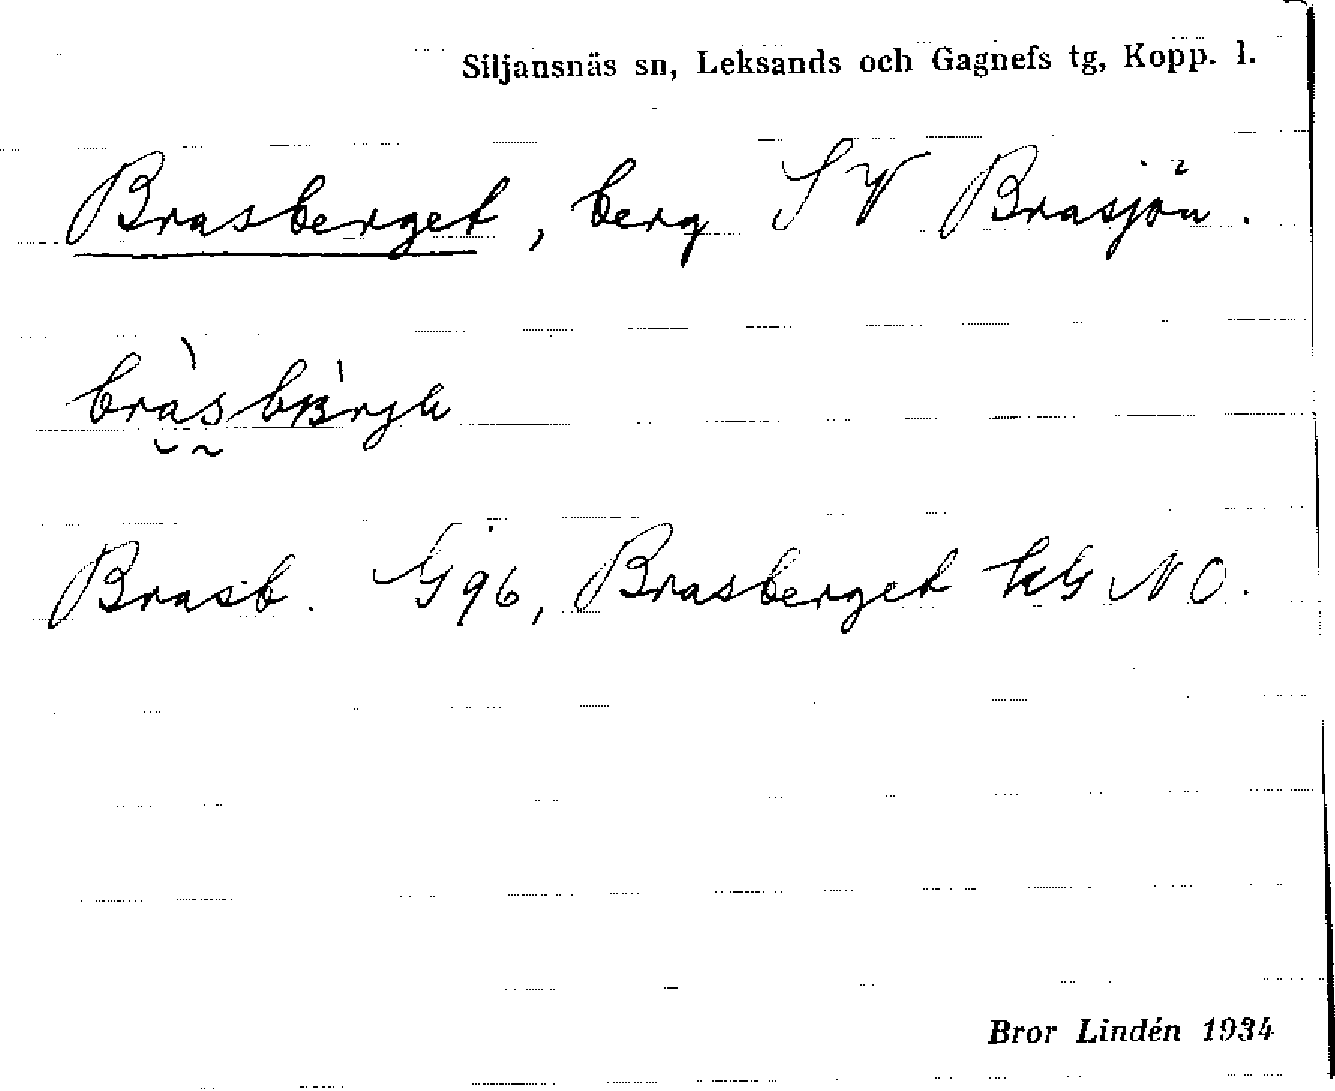 Siljansnäs sn, Leksands och Gagnefs tg, Kopp. l.
Brasberget, berg SV Brasjön.
Brasb. G 96, Brasberget NO.
Bror Lindén 1934